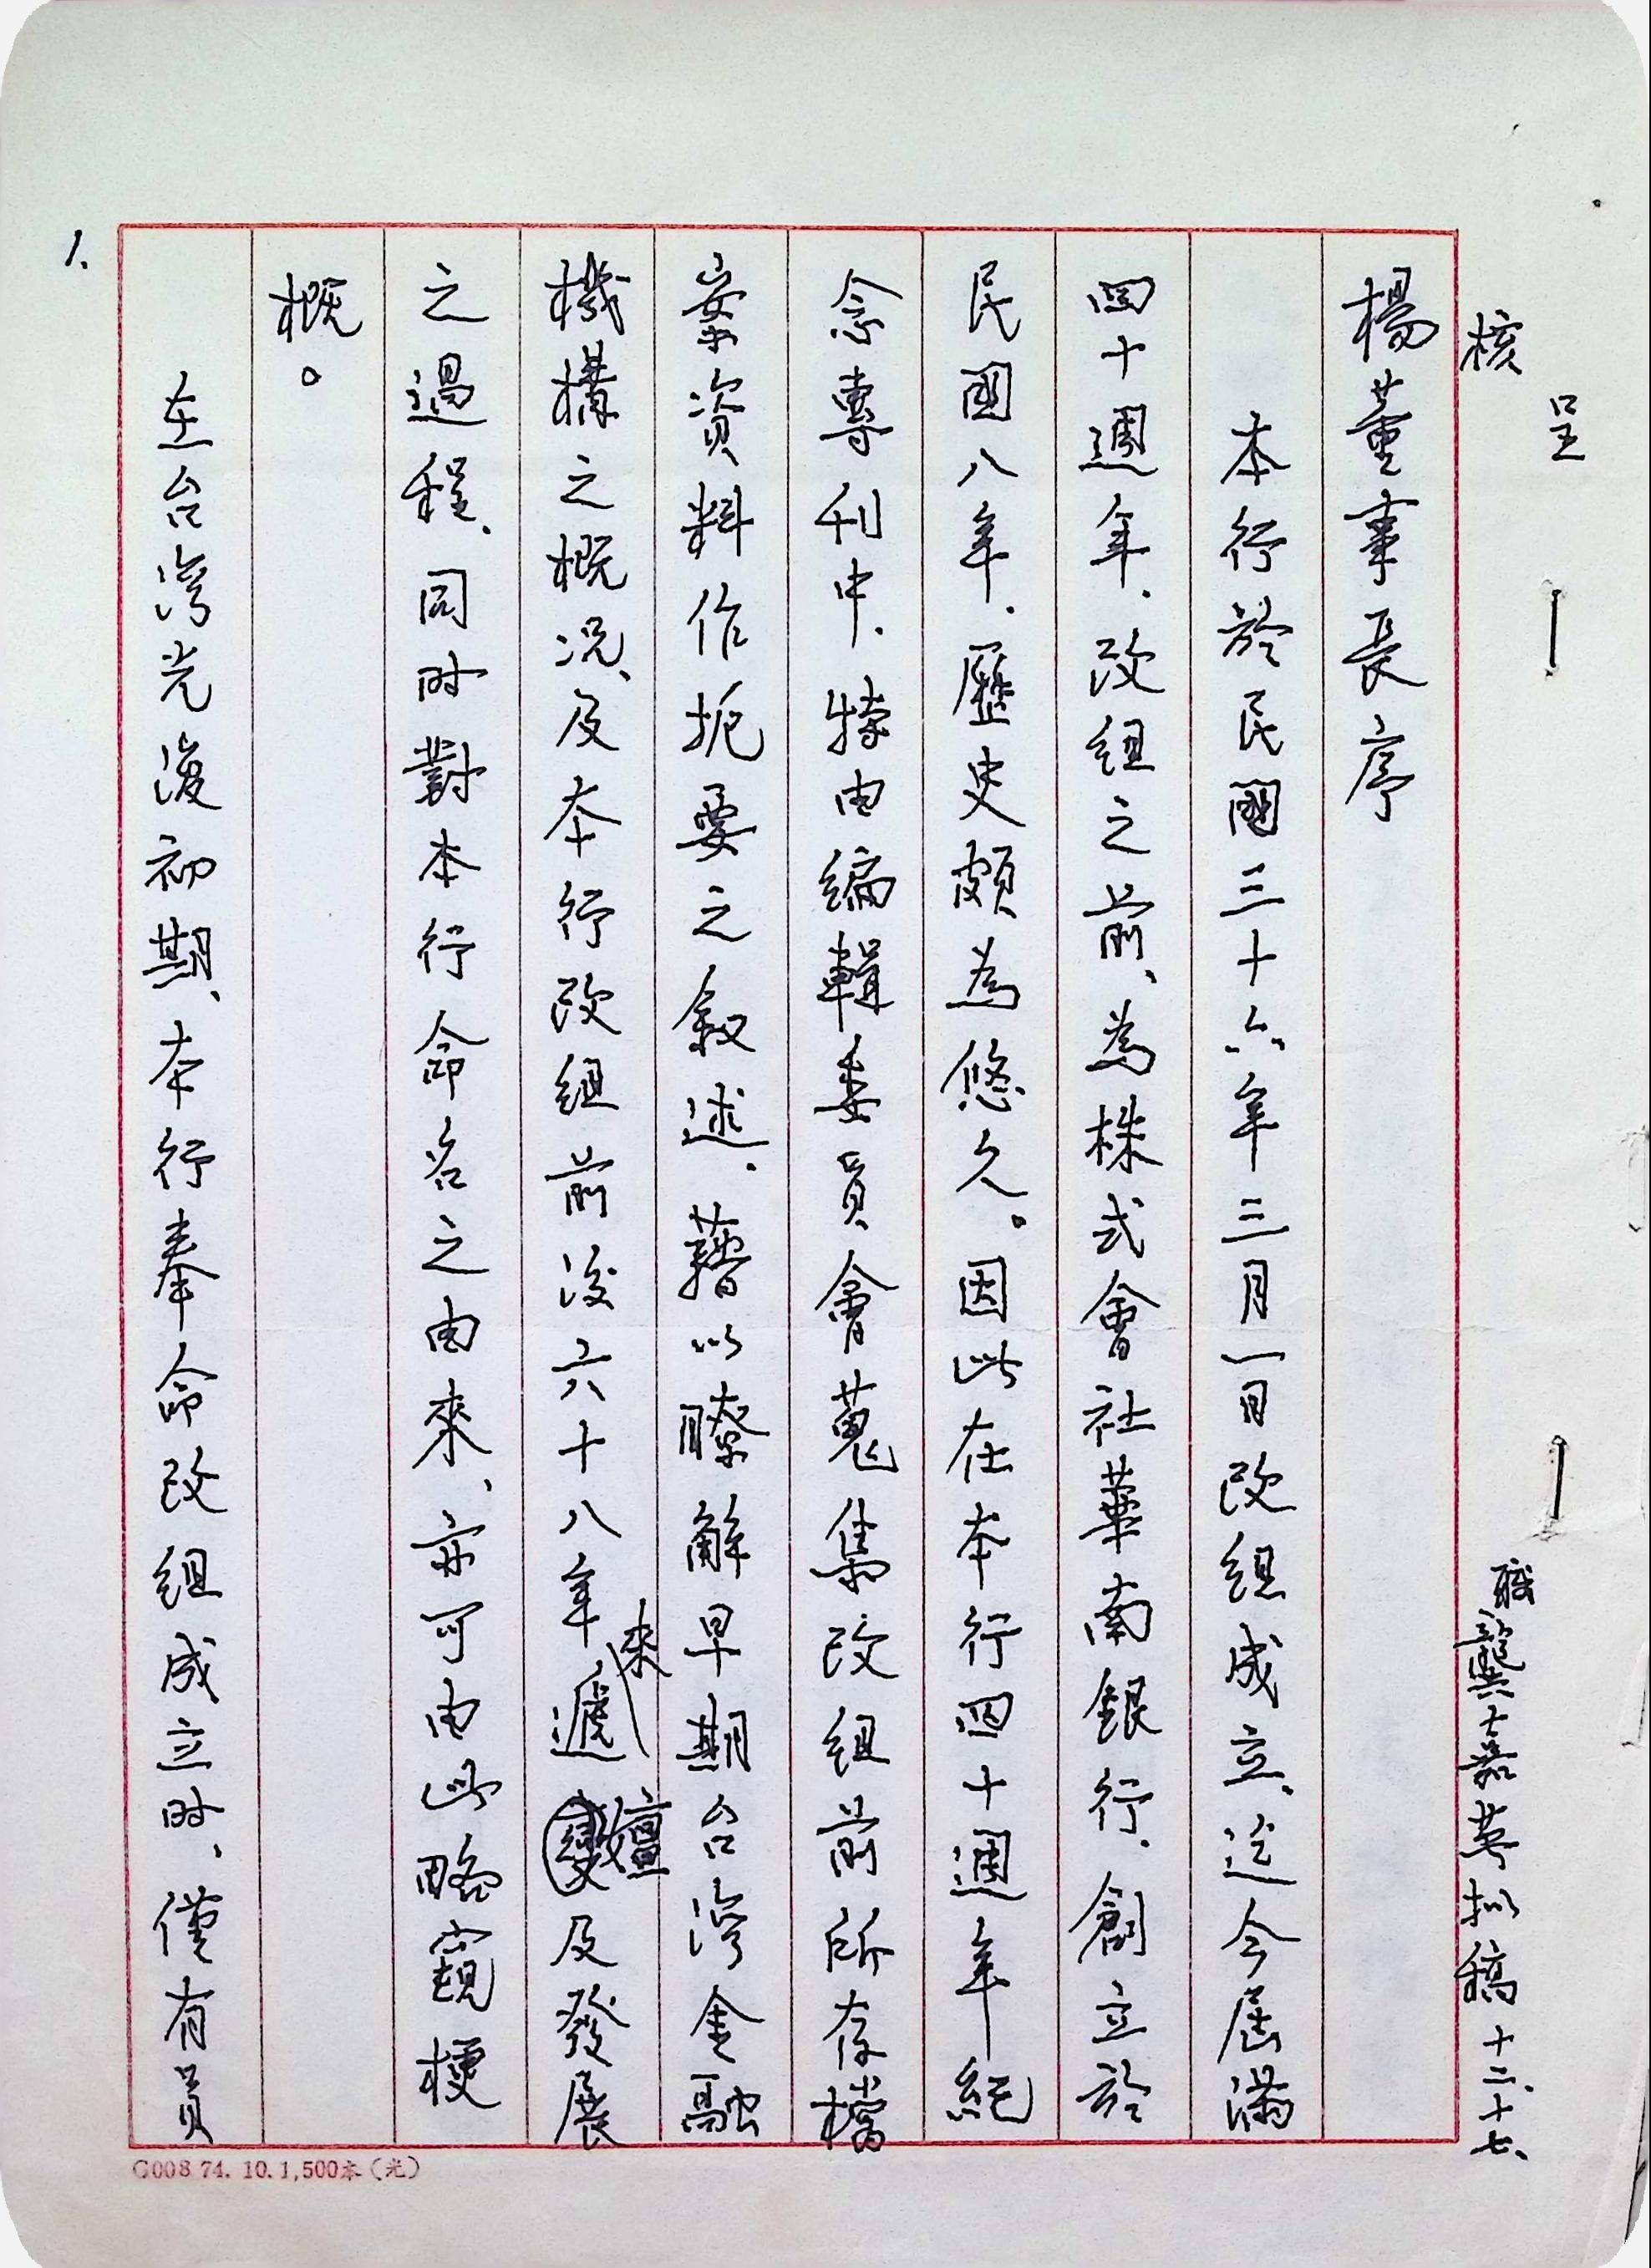 呈
核
職龔嘉英拟稿 十二、十七、
楊董事長序
本行於民國三十六年三月一日改組成立、迄今屆滿
四十週年．改組之前、為株式會社華南銀行．創立於
民國八年．歷史頗為悠久。因此在本行四十週年紀
念專刊中．特由編輯委員會蒐集改組前所存檔
案資料作扼要之敘述．藉以瞭解早期台灣金融
機構之概況、及本行改組前後六十八年來遞嬗及發展
之過程、同時對本行命名之由來、亦可由此略窺梗
概。
在台灣光復初期、本行奉命改組成立時、僅有員
1.
G008 74. 10. 1,500本（光）